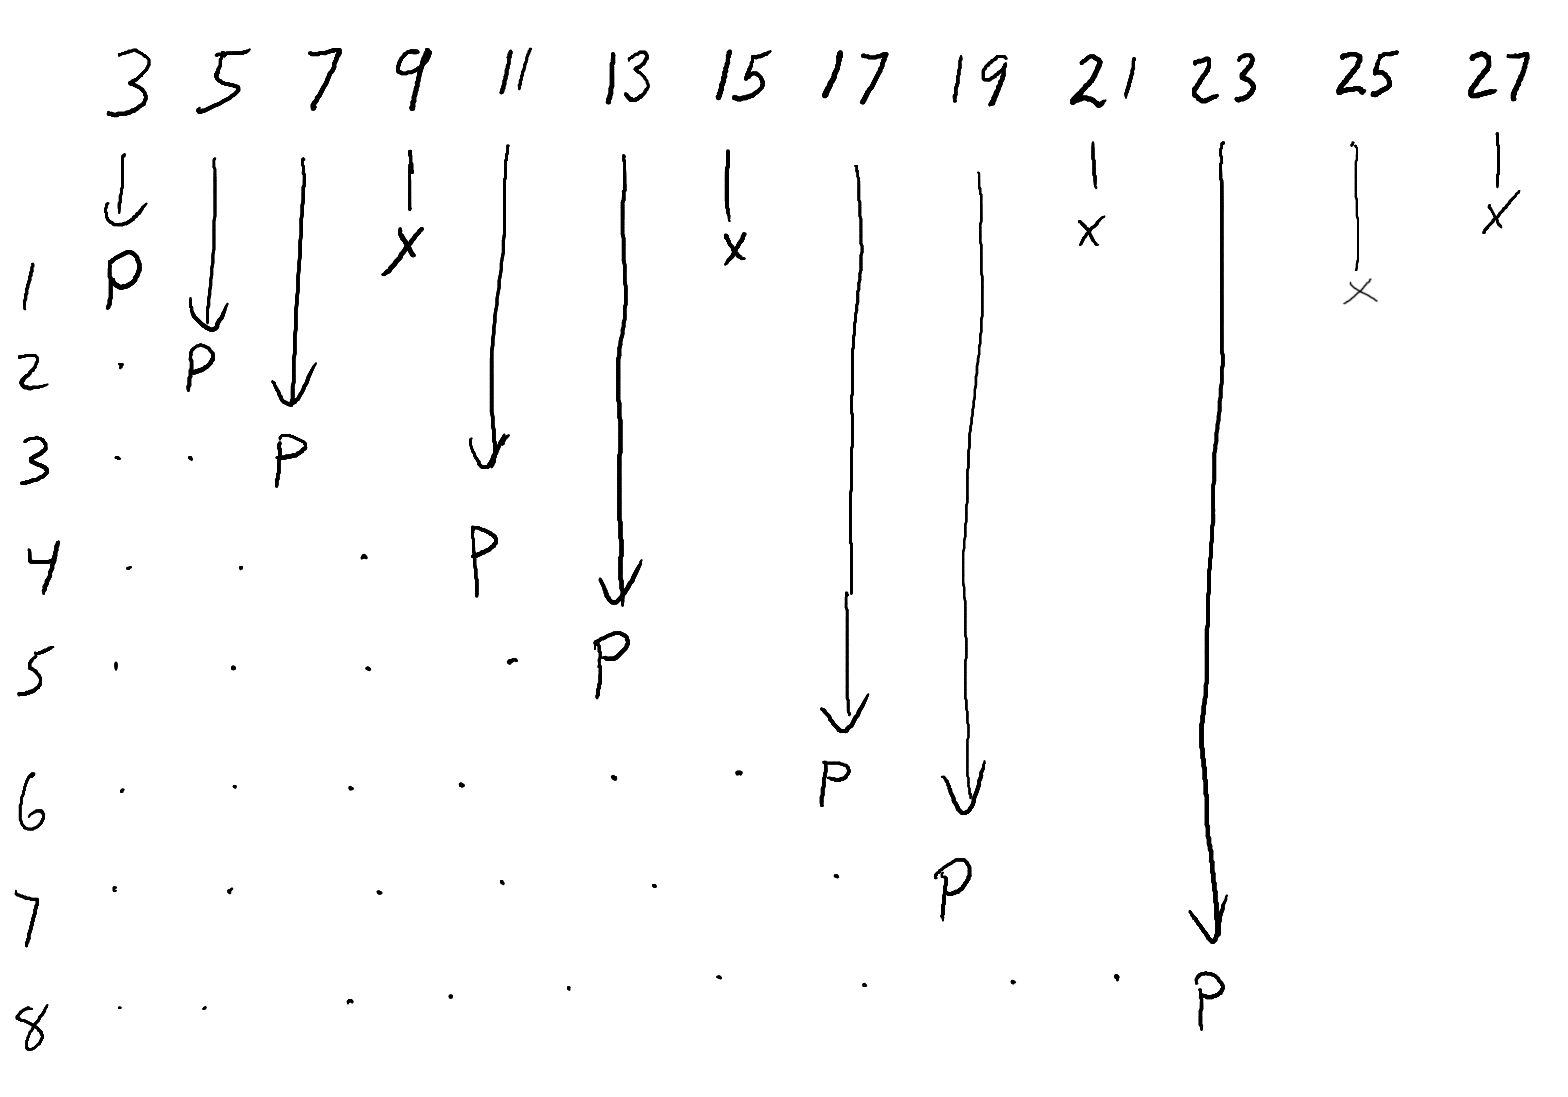 3 5 7 9 11 13 15 17 19 21 23 25 27
x x x x x
1 P
2 . P
3 . . P
4 . . . P
5 . . . . P
6 . . . . . P
7 . . . . . . P
8 . . . . . . . . . P